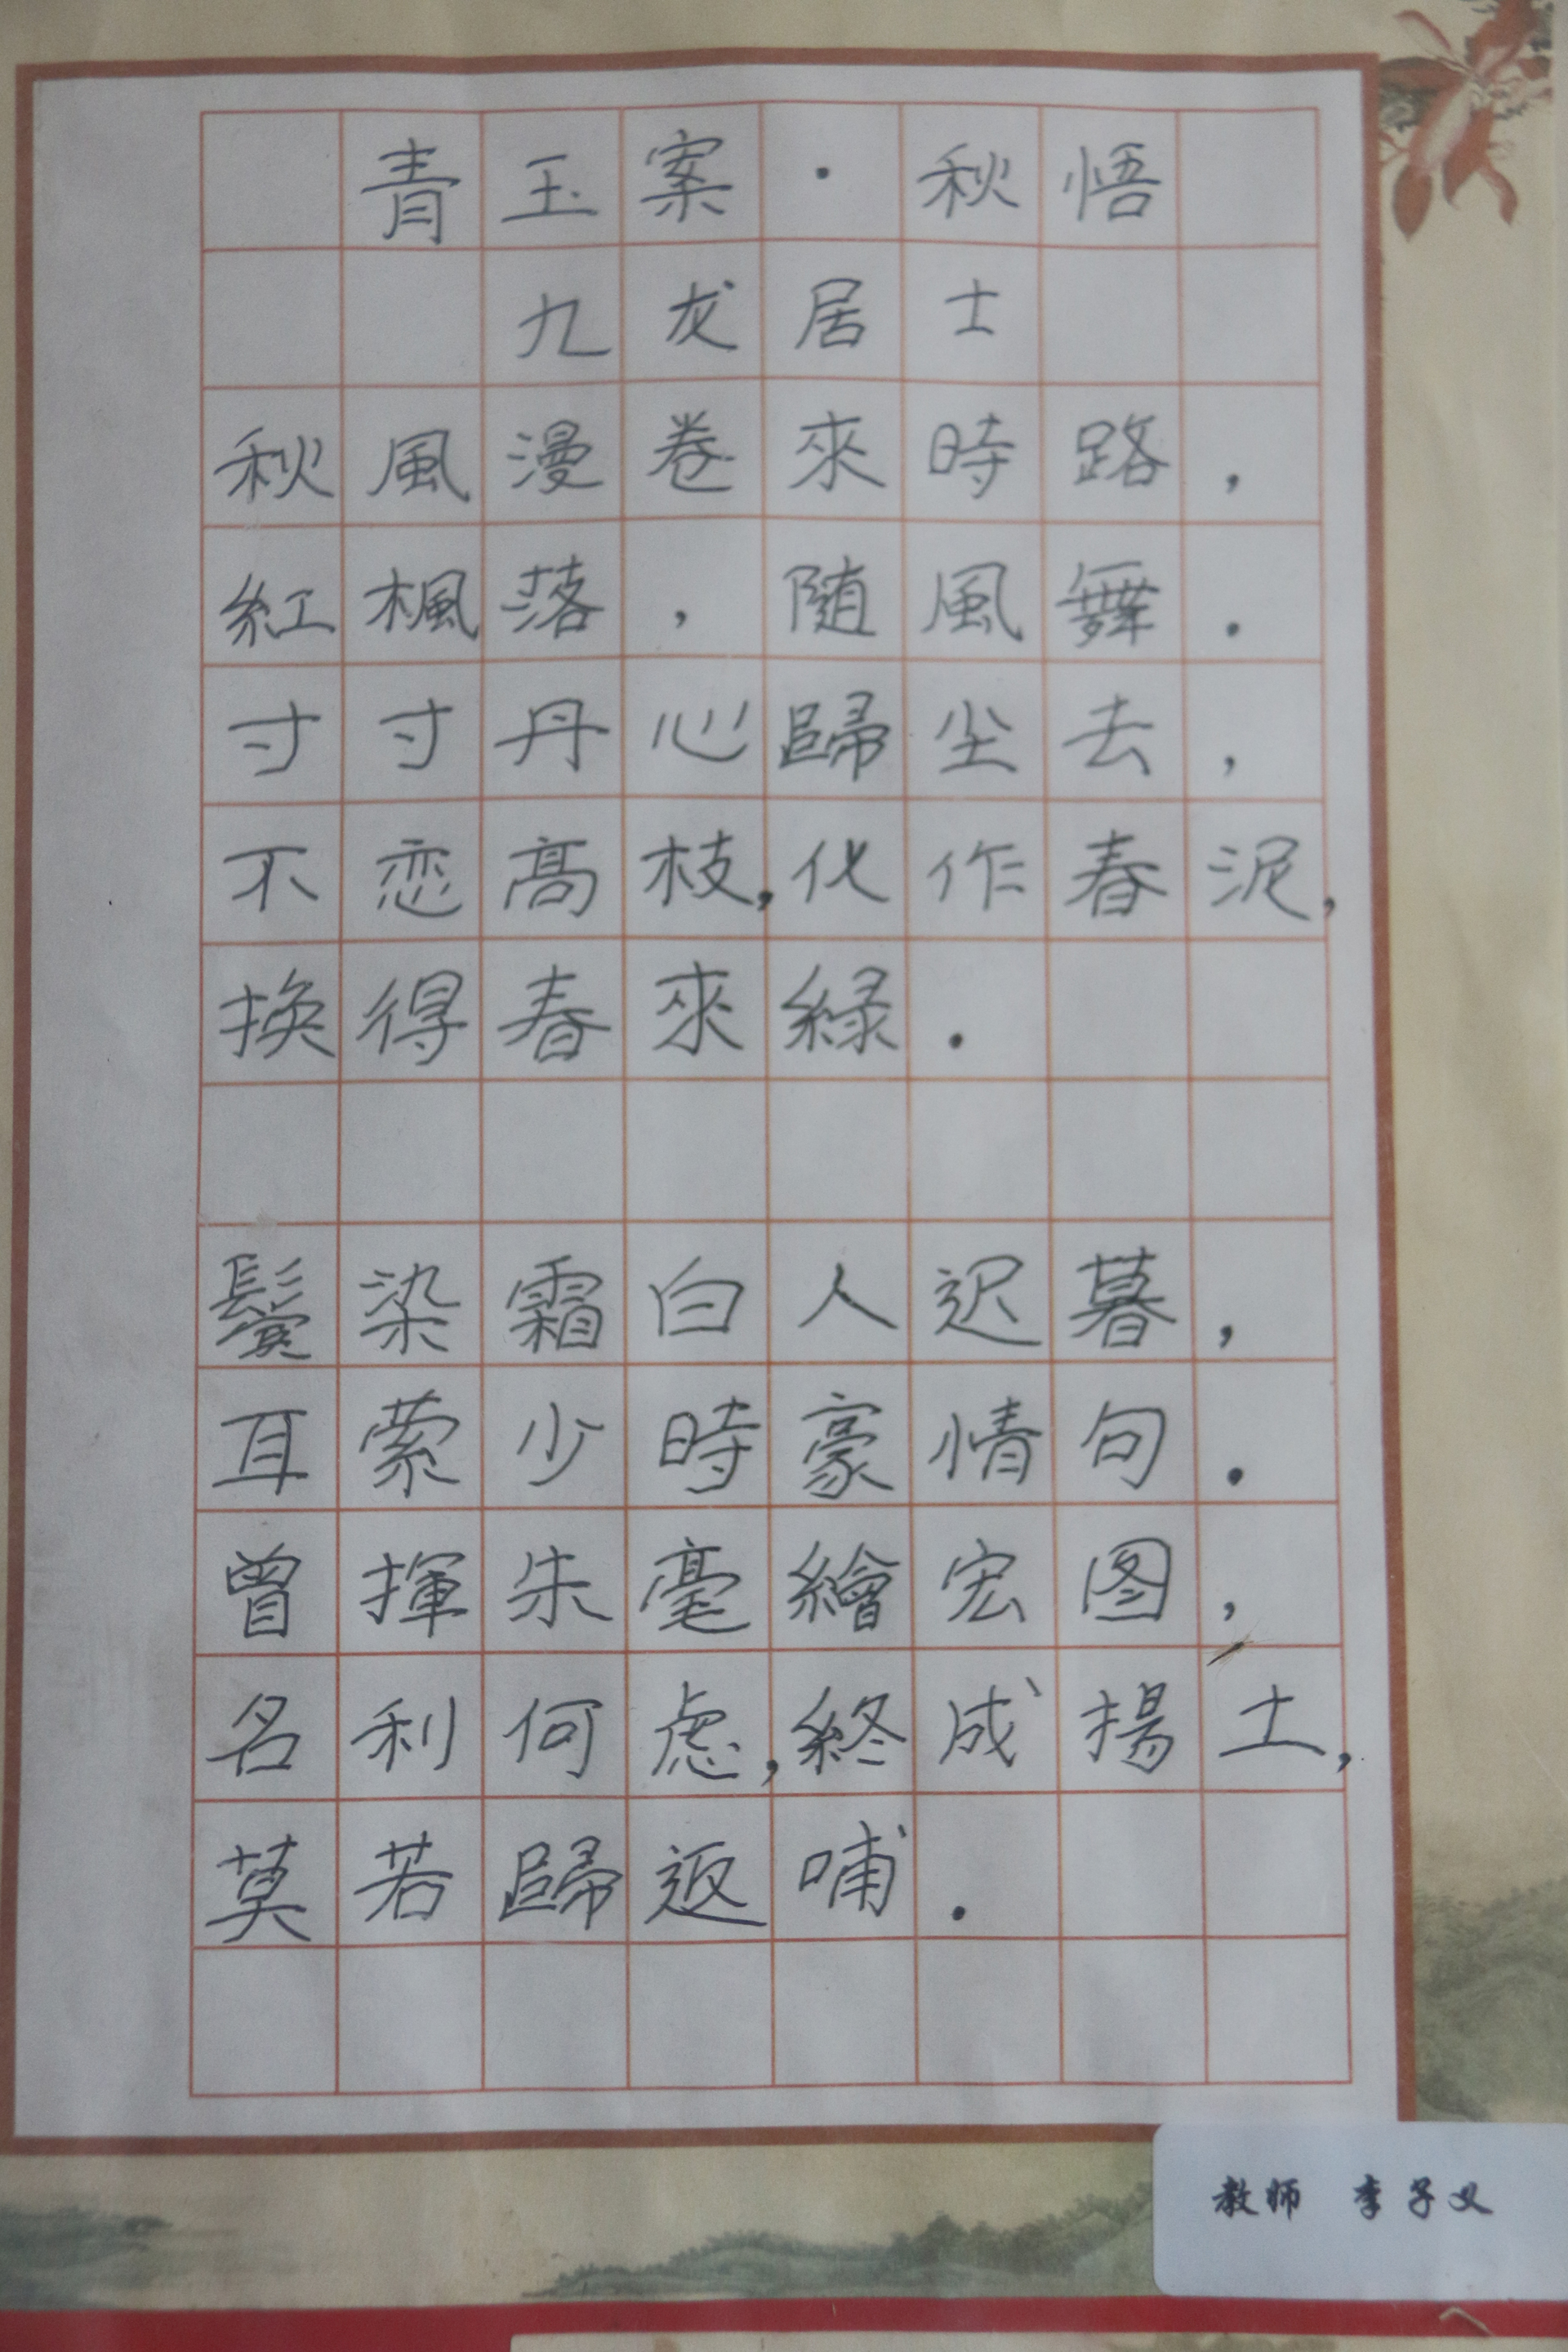 青玉案·秋悟
九龙居士
秋風漫卷來時路，
紅楓落，随風舞.
寸寸丹心歸尘去，
不恋高枝，化作春泥，
換得春來緑.
鬓染霜白人迟暮，
耳萦少時豪情句.
曾揮朱毫繪宏图，
名利何虑，終成揚土，
莫若歸返哺.
教师 李子义